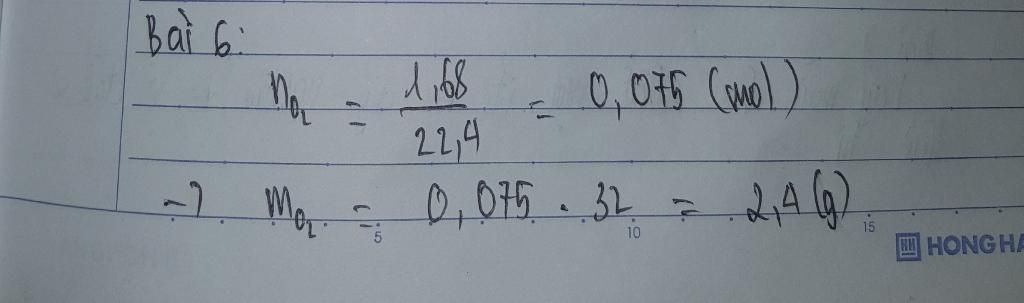 Bài 6:
n_{O_2} = \frac{1,68}{22,4} = 0,075 (mol)
-> m_{O_2} = 0,075 . 32 = 2,4 (g)
5 10 15
HH HONG HA